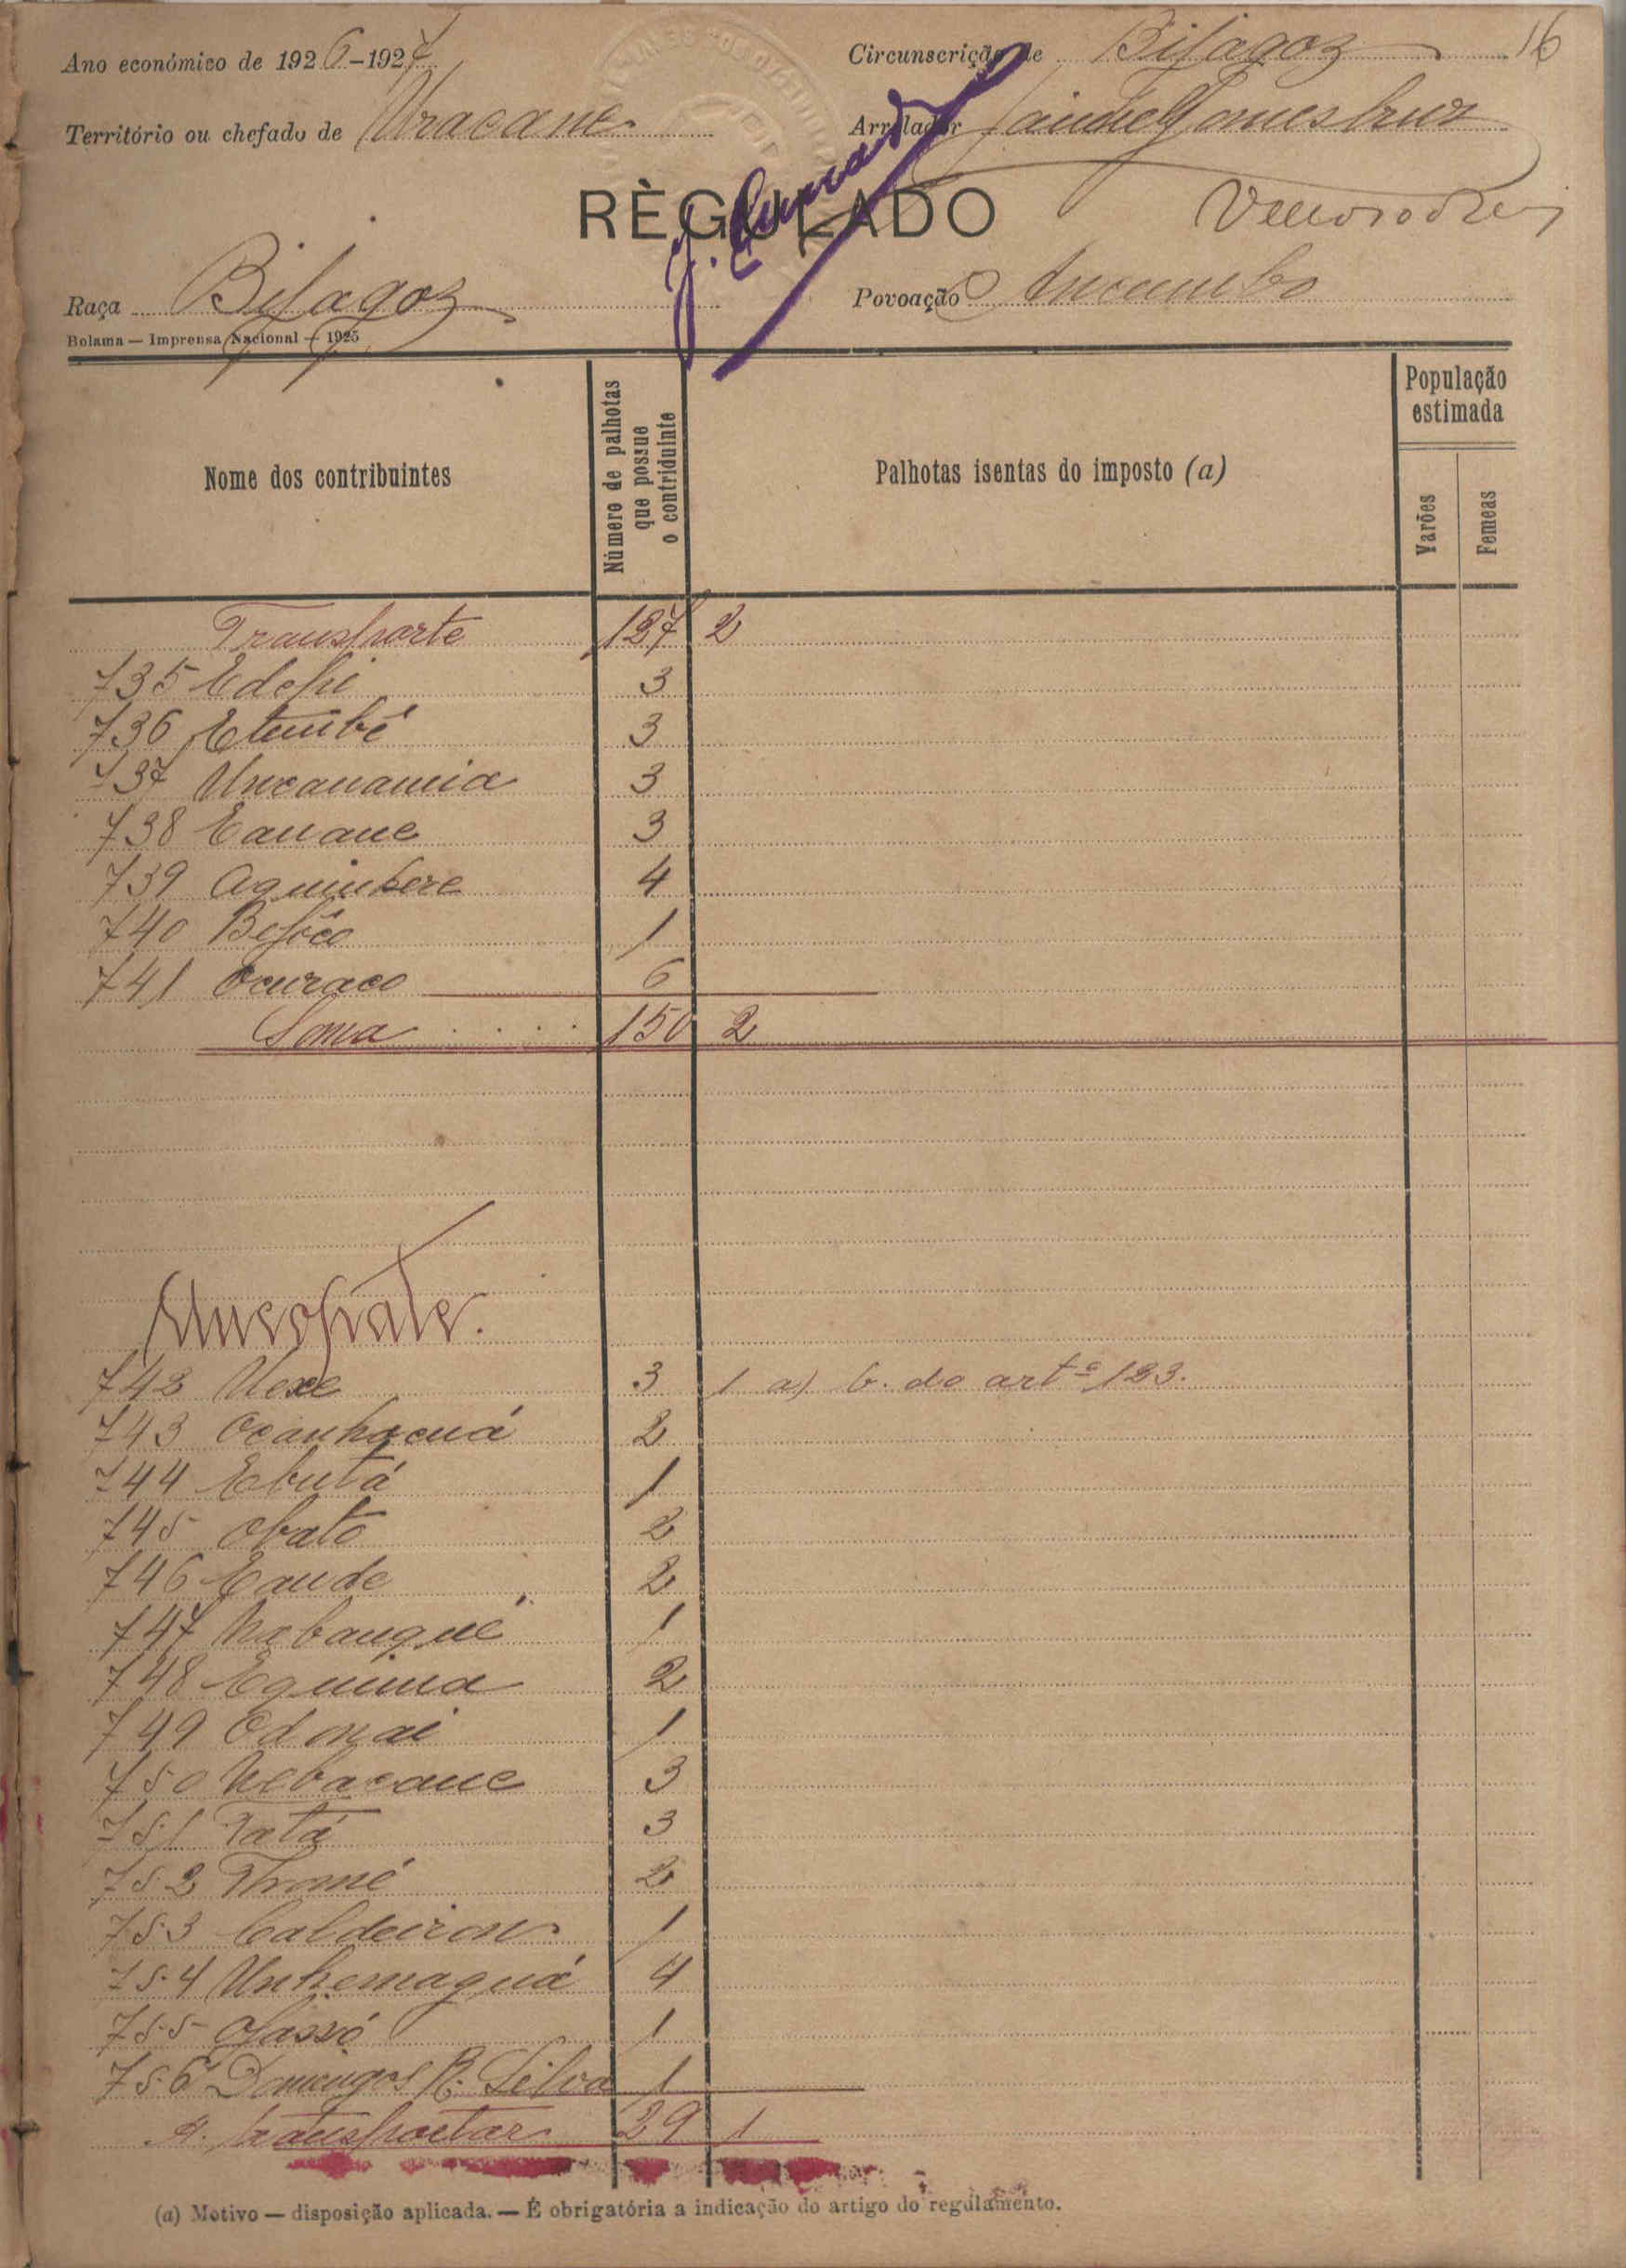 Ano económico de 1926-1927
Circunscrição de Bijagoz 16
Território ou chefado de Uracane
Arrolador Jaime Gomes
RÈGULADO
Raça Bijagoz
Povoação Ancumbo
Bolama — Imprensa Nacional — 1925
Nome dos contribuintes
Número de palhotas que possue o contriduinte
Palhotas isentas do imposto (a)
População estimada
Varões
Femeas
Transporte 127 2
735 Edepi 3
736 Etembê 3
737 Uncanamia 3
738 Eauane 3
739 Aquimbere 4
740 Bejôco 1
741 Ocuraco 6
Soma . . . . 150 2
742 Uexe 3 1 a) b. do artº 123.
743 Ocanhacuá 2
744 Ebutá 1
745 Obato 2
746 Eaude 2
747 Nabanqué 1
748 Equima 2
749 Odonai 1
750 Nebacane 3
751 Tatá 3
752 Thomé 2
753 Caldeiron 1
754 Unhemaguá 4
755 Ojassó 1
756 Domingos R. Silva 1
A transportar 29 1
(a) Motivo — disposição aplicada. — É obrigatória a indicação do artigo do regulamento.